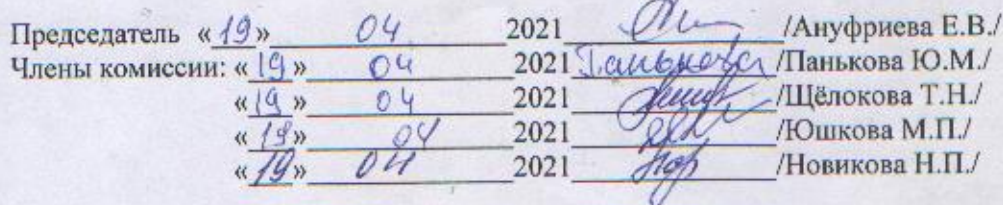 Председатель «19» 04 2021 /Ануфриева Е.В./
Члены комиссии: «19» 04 2021 Панькова /Панькова Ю.М./
«19» 04 2021 /Щёлокова Т.Н./
«19» 04 2021 /Юшкова М.П./
«19» 04 2021 /Новикова Н.П./